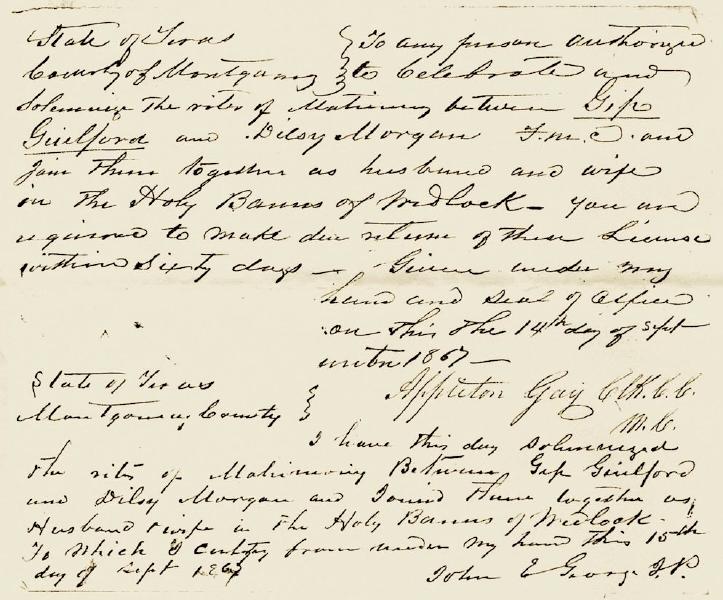 State of Texas
County of Montgomery
To any person authorized
to Celebrate and
Solemnize the rites of Matrimony between Gip
Guilford and Dilsy Morgan F.M.C. and
Join them together as husband and wife
in the Holy Banns of Wedlock - you are
required to make due return of these License
within Sixty days - Given under my
hand and Seal of Office
on this the 14th day of Sept
1867 -
Appleton Gay Clk. C.C.
M.C.
State of Texas
Montgomery County
I have this day Solemnized
the rites of Matrimony Between Gip Guilford
and Dilsy Morgan and Joined them together as
Husband & wife in the Holy Banns of Wedlock -
To which I certify from under my hand this 15th
day of Sept 1867
John E George J.P.